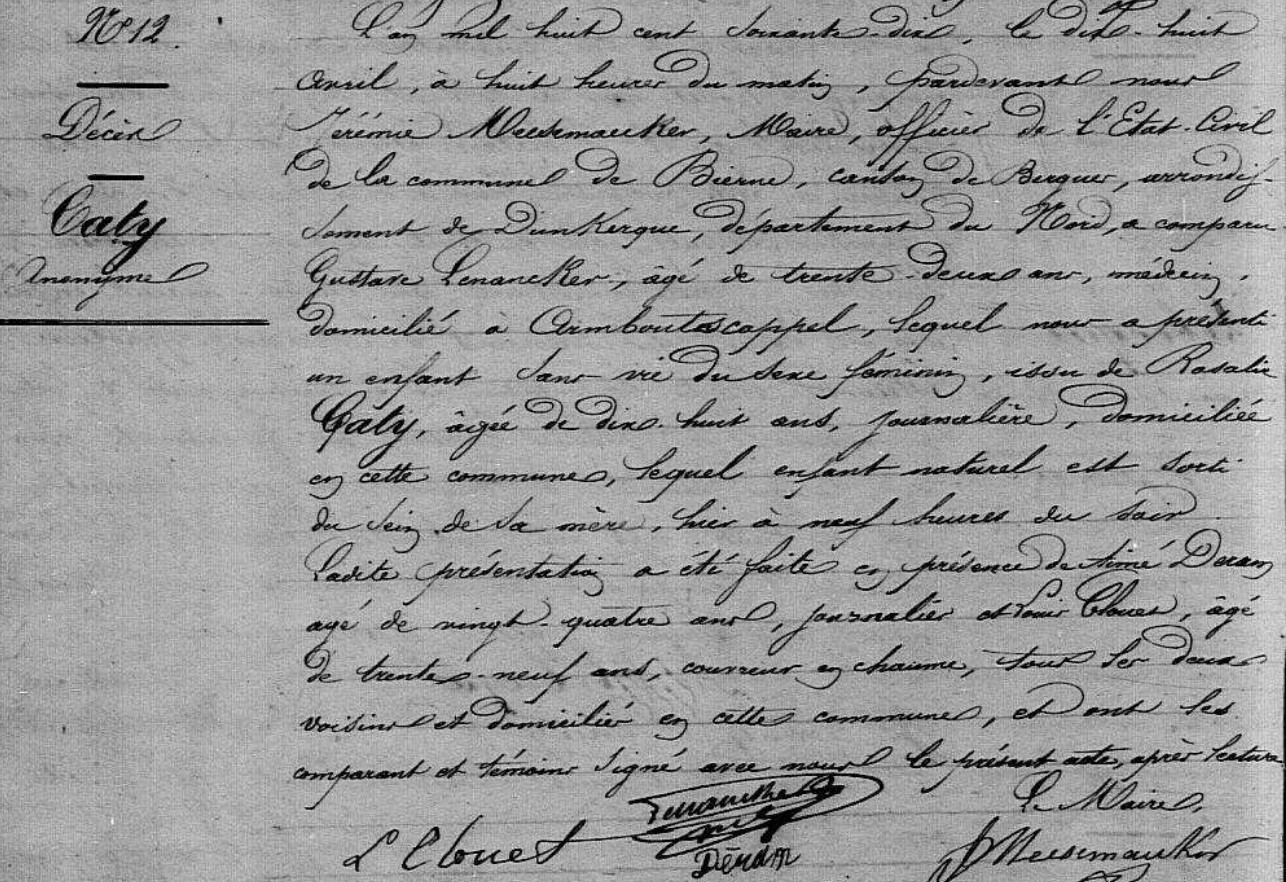 N° 12.
Décès
Caty
Anonyme
L'an mil huit cent soixante-dix, le dix-huit
avril, à huit heures du matin, pardevant nous
Jérémie Meesemaecker, Maire, officier de l'Etat-Civil
de la commune de Bierne, canton de Bergues, arrondis-
sement de Dunkerque, département du Nord, a comparu
Gustave Lenancker, âgé de trente-deux ans, médecin,
domicilié à Armboutscappel, lequel nous a présenté
un enfant sans vie du sexe féminin, issu de Rosalie
Caty, âgée de dix-huit ans, journalière, domiciliée
en cette commune, lequel enfant naturel est sorti
du sein de sa mère, hier à neuf heures du soir.
Ladite présentation a été faite en présence de Aimé Deram
agé de vingt-quatre ans, journalier et Louis Clouet, âgé
de trente-neuf ans, couvreur en chaume, tous les deux
voisins et domiciliés en cette commune, et ont les
comparant et témoins signé avec nous le présent acte, après lecture
Le Maire,
L Clouet
Deram